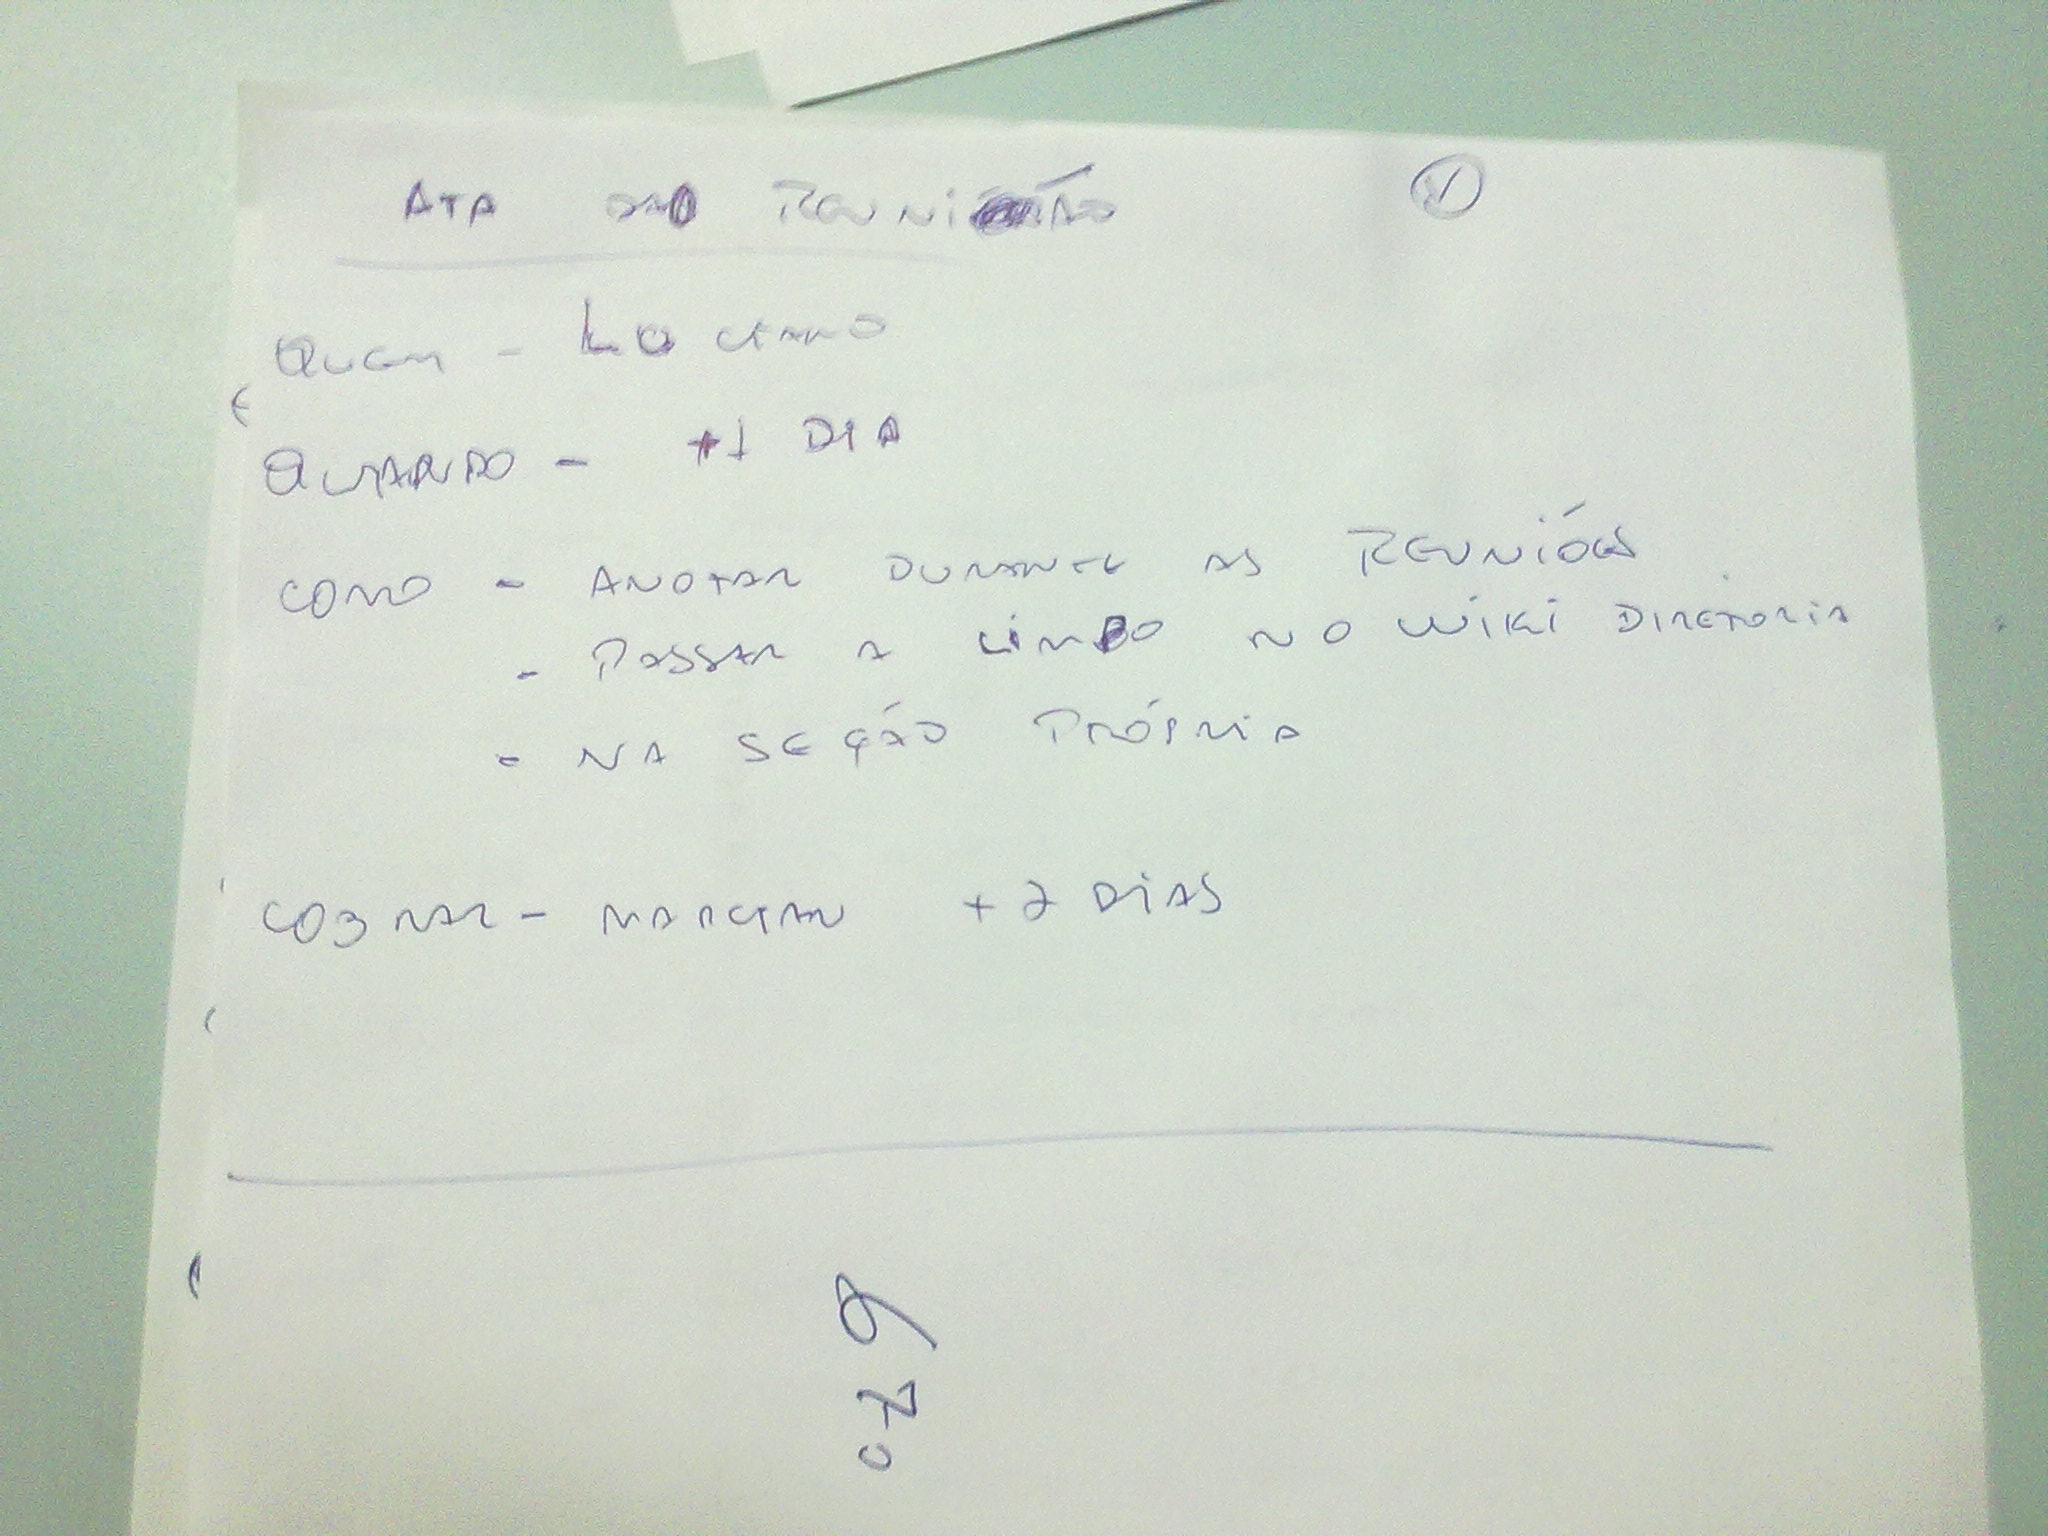 ATA DA REUNIÃO
QUEM - LUCIANO
QUANDO - +1 DIA
COMO - ANOTAR DURANTE AS REUNIÓES
- PASSAR A LIMPO NO WIKI DIRETORIA
- NA SEÇÃO PRÓPRIA
COBRAR - MARCIAN +2 DIAS